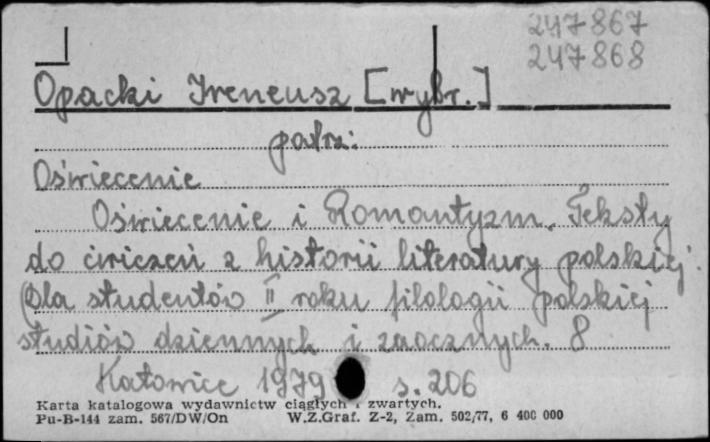 247867
247868
Opacki Ireneusz [wybr.]
patrz:
Oświecenie
Oświecenie i Romantyzm. Teksty
do ćwiczeń z historii literatury polskiej.
(Dla studentów II roku filologii polskiej
studiów dziennych i zaocznych. 8
Katowice 1979 s. 206
Karta katalogowa wydawnictw ciągłych i zwartych.
Pu-B-144 zam. 567/DW/On W.Z.Graf. Z-2, Zam. 502/77, 6 400 000